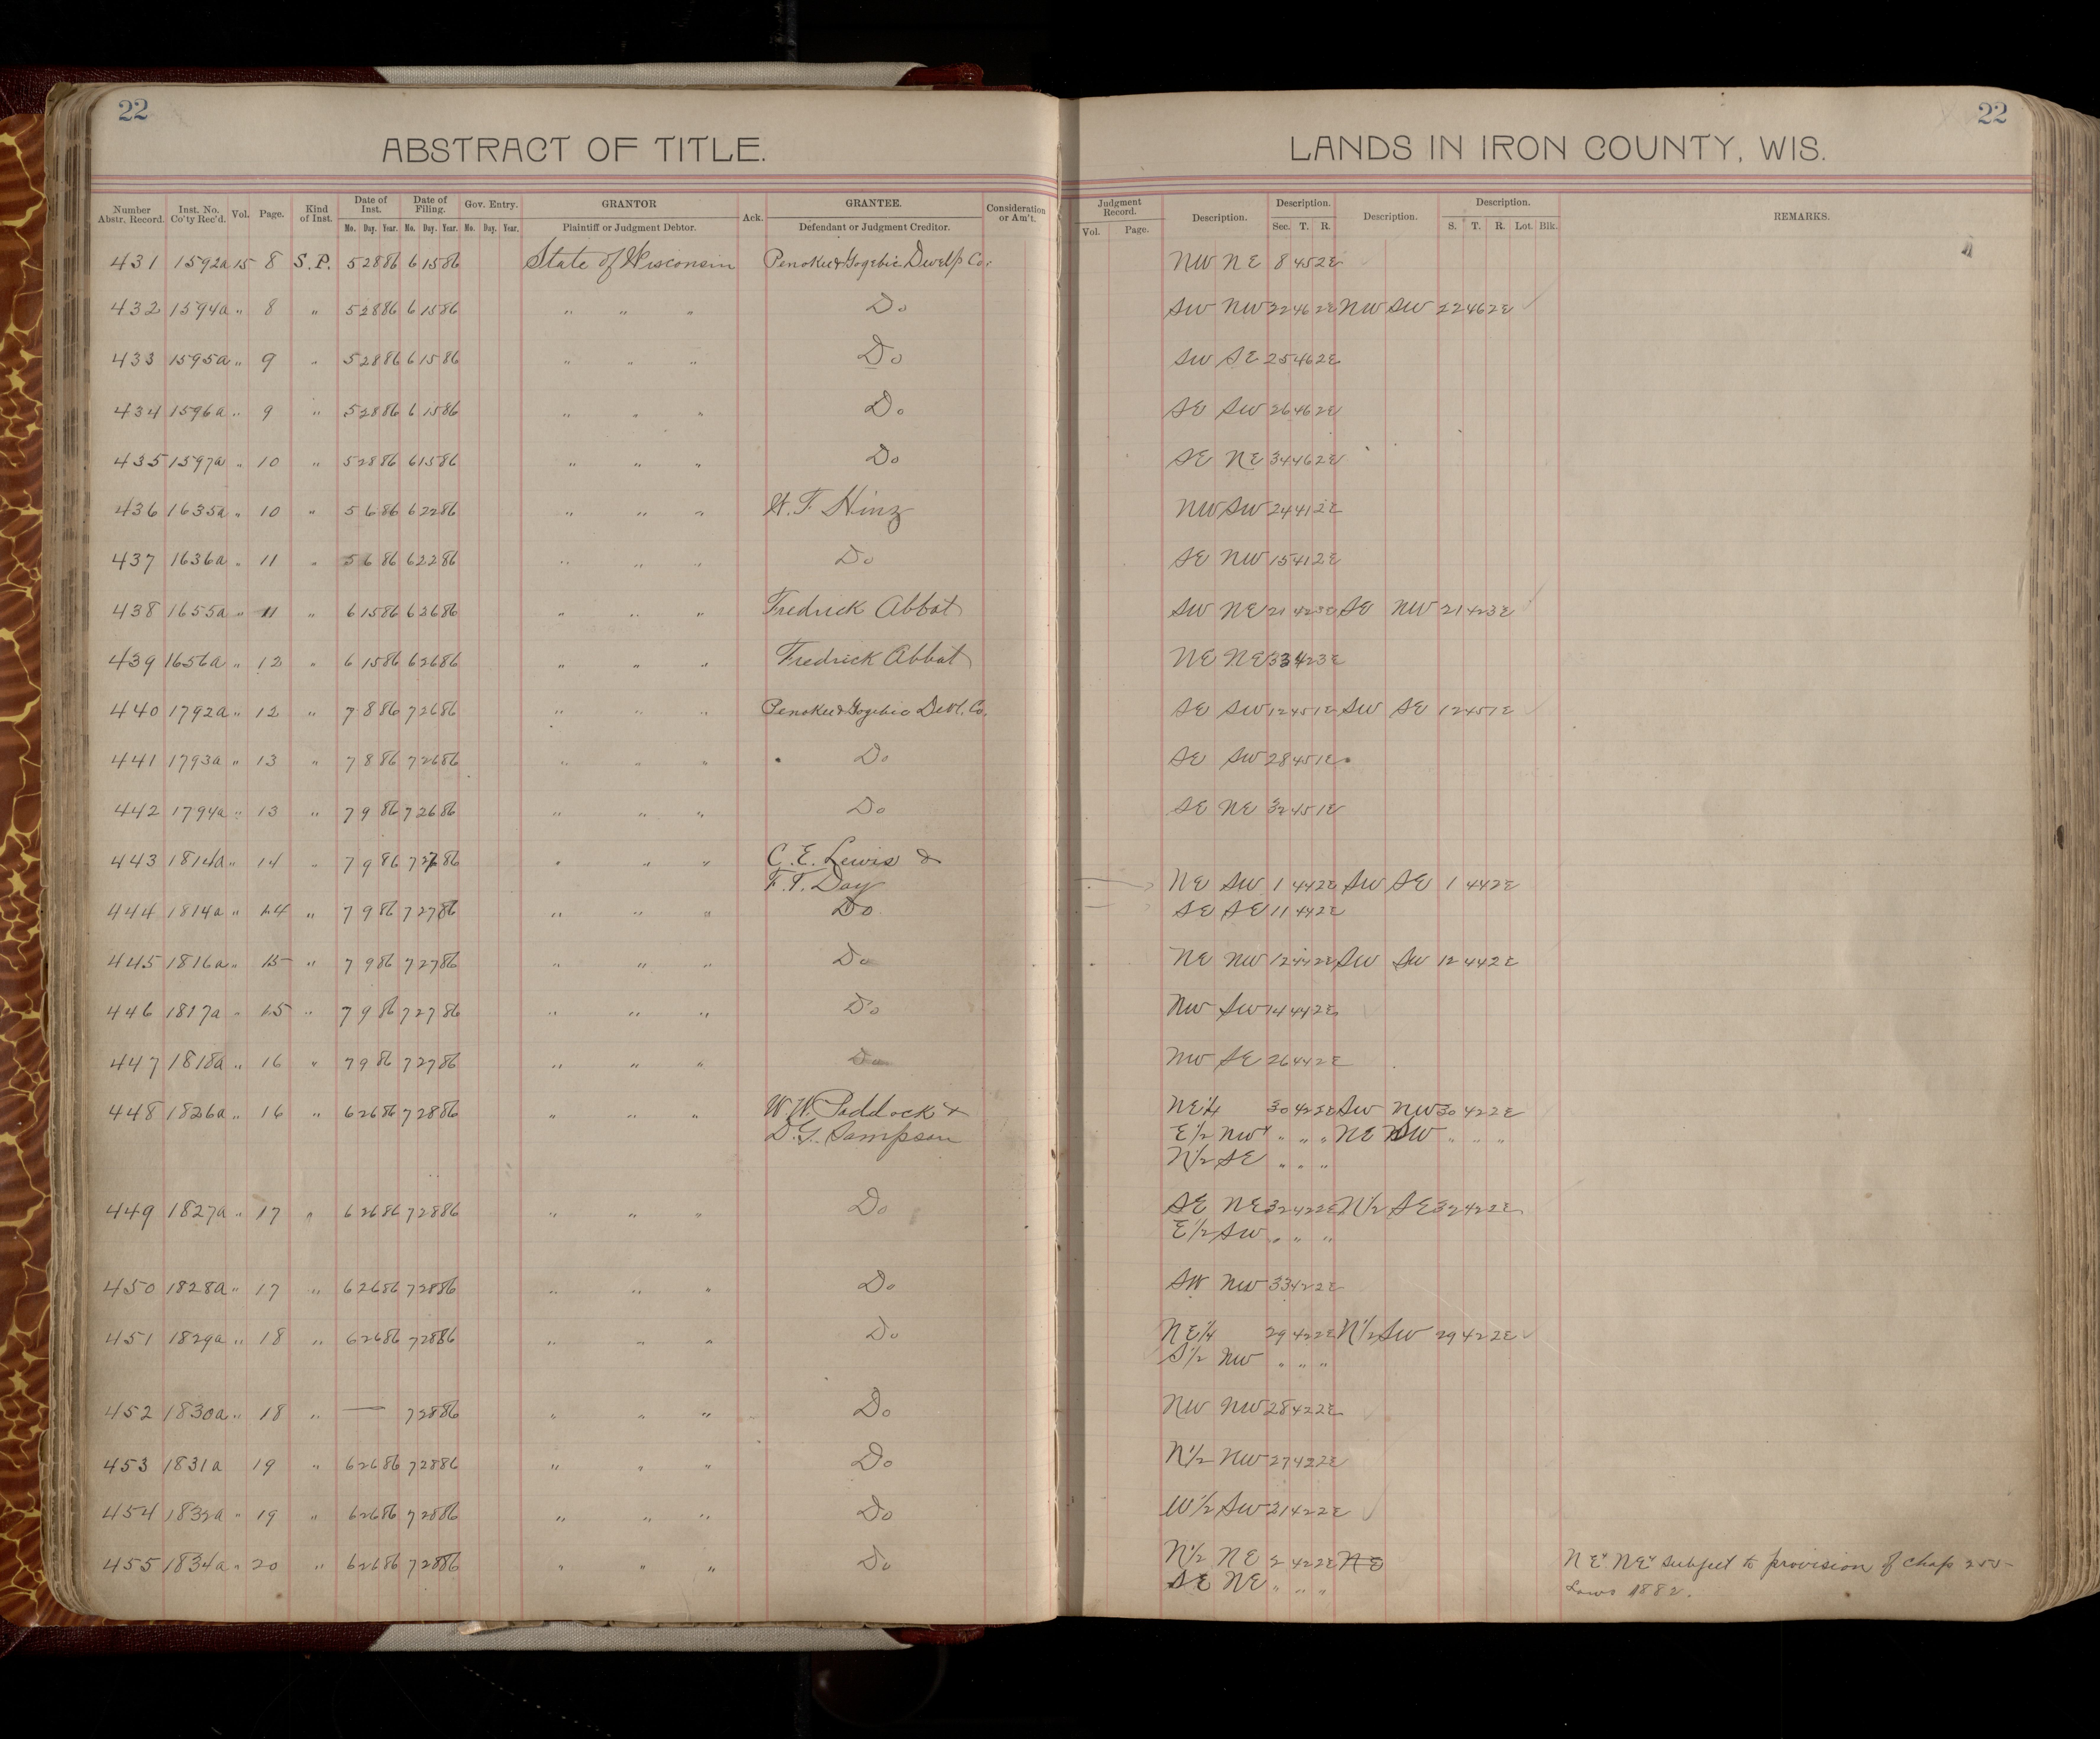 22
22
ABSTRACT OF TITLE.
LANDS IN IRON COUNTY, WIS.
Number Abstr. Record. Inst. No. Co'ty Rec'd. Vol. Page. Kind of Inst. Date of Inst. Date of Filing. Gov. Entry. GRANTOR Ack. GRANTEE. Consideration or Am't. Judgment Record. Description. Description. Description. Description. REMARKS.
Mo. Day. Year. Mo. Day. Year. Mo. Day. Year. Plaintiff or Judgment Debtor. Defendant or Judgment Creditor. Vol. Page. Sec. T. R. S. T. R. Lot. Blk.
431 1592a 15 8 S.P. 5 28 86 6 15 86 State of Wisconsin Penokee & Gogebic Develp Co. NW NE 8 45 2E
432 1594a " 8 " 5 28 86 6 15 86 " " " Do SW NW 22 46 2E NW SW 22 46 2E
433 1595a " 9 " 5 28 86 6 15 86 " " " Do SW SE 25 46 2E
434 1596a " 9 " 5 28 86 6 15 86 " " " Do SE SW 26 46 2E
435 1597a " 10 " 5 28 86 6 15 86 " " " Do SE NE 34 46 2E
436 1635a " 10 " 5 6 86 6 22 86 " " " H. F. Hinz NW SW 24 41 2E
437 1636a " 11 " 5 6 86 6 22 86 " " " Do SE NW 15 41 2E
438 1655a " 11 " 6 15 86 6 26 86 " " " Fredrick Abbat SW NE 21 42 3E SE NW 21 42 3E
439 1656a " 12 " 6 15 86 6 26 86 " " " Fredrick Abbat NE NE 33 42 3E
440 1792a " 12 " 7 8 86 7 26 86 " " " Penokee & Gogebic Devl. Co. SE SW 12 45 1E SW SE 12 45 1E
441 1793a " 13 " 7 8 86 7 26 86 " " " Do SE SW 28 45 1E
442 1794a " 13 " 7 9 86 7 26 86 " " " Do SE NE 32 45 1E
443 1814a " 14 " 7 9 86 7 27 86 " " " C. E. Lewis &
F. T. Day NE SW 1 44 2E SW SE 1 44 2E
444 1814a " 14 " 7 9 86 7 27 86 " " " Do SE SE 11 44 2E
445 1816a " 15 " 7 9 86 7 27 86 " " " Do NE NW 12 44 2E SW SW 12 44 2E
446 1817a " 15 " 7 9 86 7 27 86 " " " Do NW SW 14 44 2E
447 1818a " 16 " 7 9 86 7 27 86 " " " Do NW SE 26 44 2E
448 1826a " 16 " 6 26 86 7 28 86 " " " W. W. Paddock & NE 1/4 30 42 2E SW NW 30 42 2E
D. G. Sampson E 1/2 NW " " " NE SW " " "
N 1/2 SE " " "
449 1827a " 17 " 6 26 86 7 28 86 " " " Do SE NE 32 42 2E N 1/2 SE 32 42 2E
E 1/2 SW " " "
450 1828a " 17 " 6 26 86 7 28 86 " " " Do SW NW 33 42 2E
451 1829a " 18 " 6 26 86 7 28 86 " " " Do NE 1/4 29 42 2E N 1/2 SW 29 42 2E
S 1/2 NW " " "
452 1830a " 18 " — 7 28 86 " " " Do NW NW 28 42 2E
453 1831a 19 " 6 26 86 7 28 86 " " " Do N 1/2 NW 27 42 2E
454 1832a " 19 " 6 26 86 7 28 86 " " " Do W 1/2 SW 21 42 2E
455 1834a " 20 " 6 26 86 7 28 86 " " " Do N 1/2 NE 2 42 2E NE NE" NE" subject to provision of Chap 255
SE NE " " " Laws 1882.